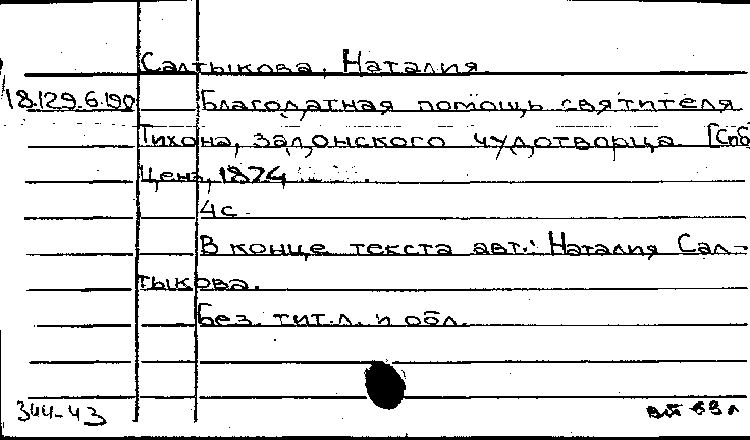 Салтыкова, Наталия
18.129.6.190 Благодатная помощь святителя
Тихона, задонского чудотворца. [Спб
Ценз, 1874
4с.
В конце текста авт.: Наталия Сал-
тыкова.
Без тит.л. и обл.
344-43